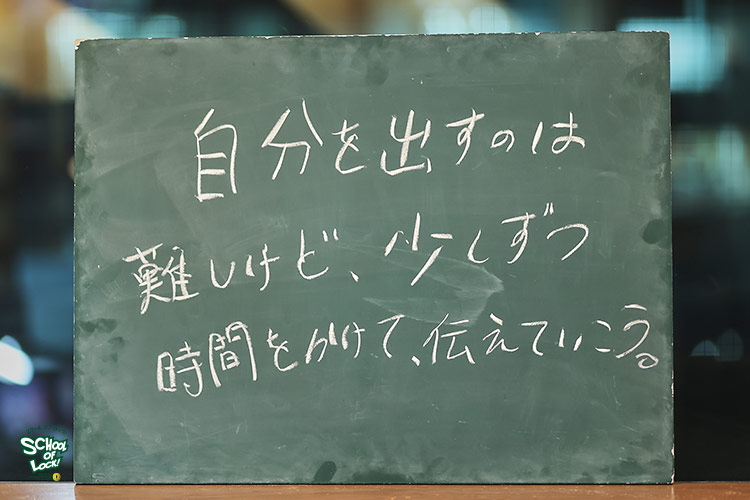 自分を出すのは
難しけど、少しずつ
時間をかけて、伝えていこう。
SCHOOL
OF
LOCK!